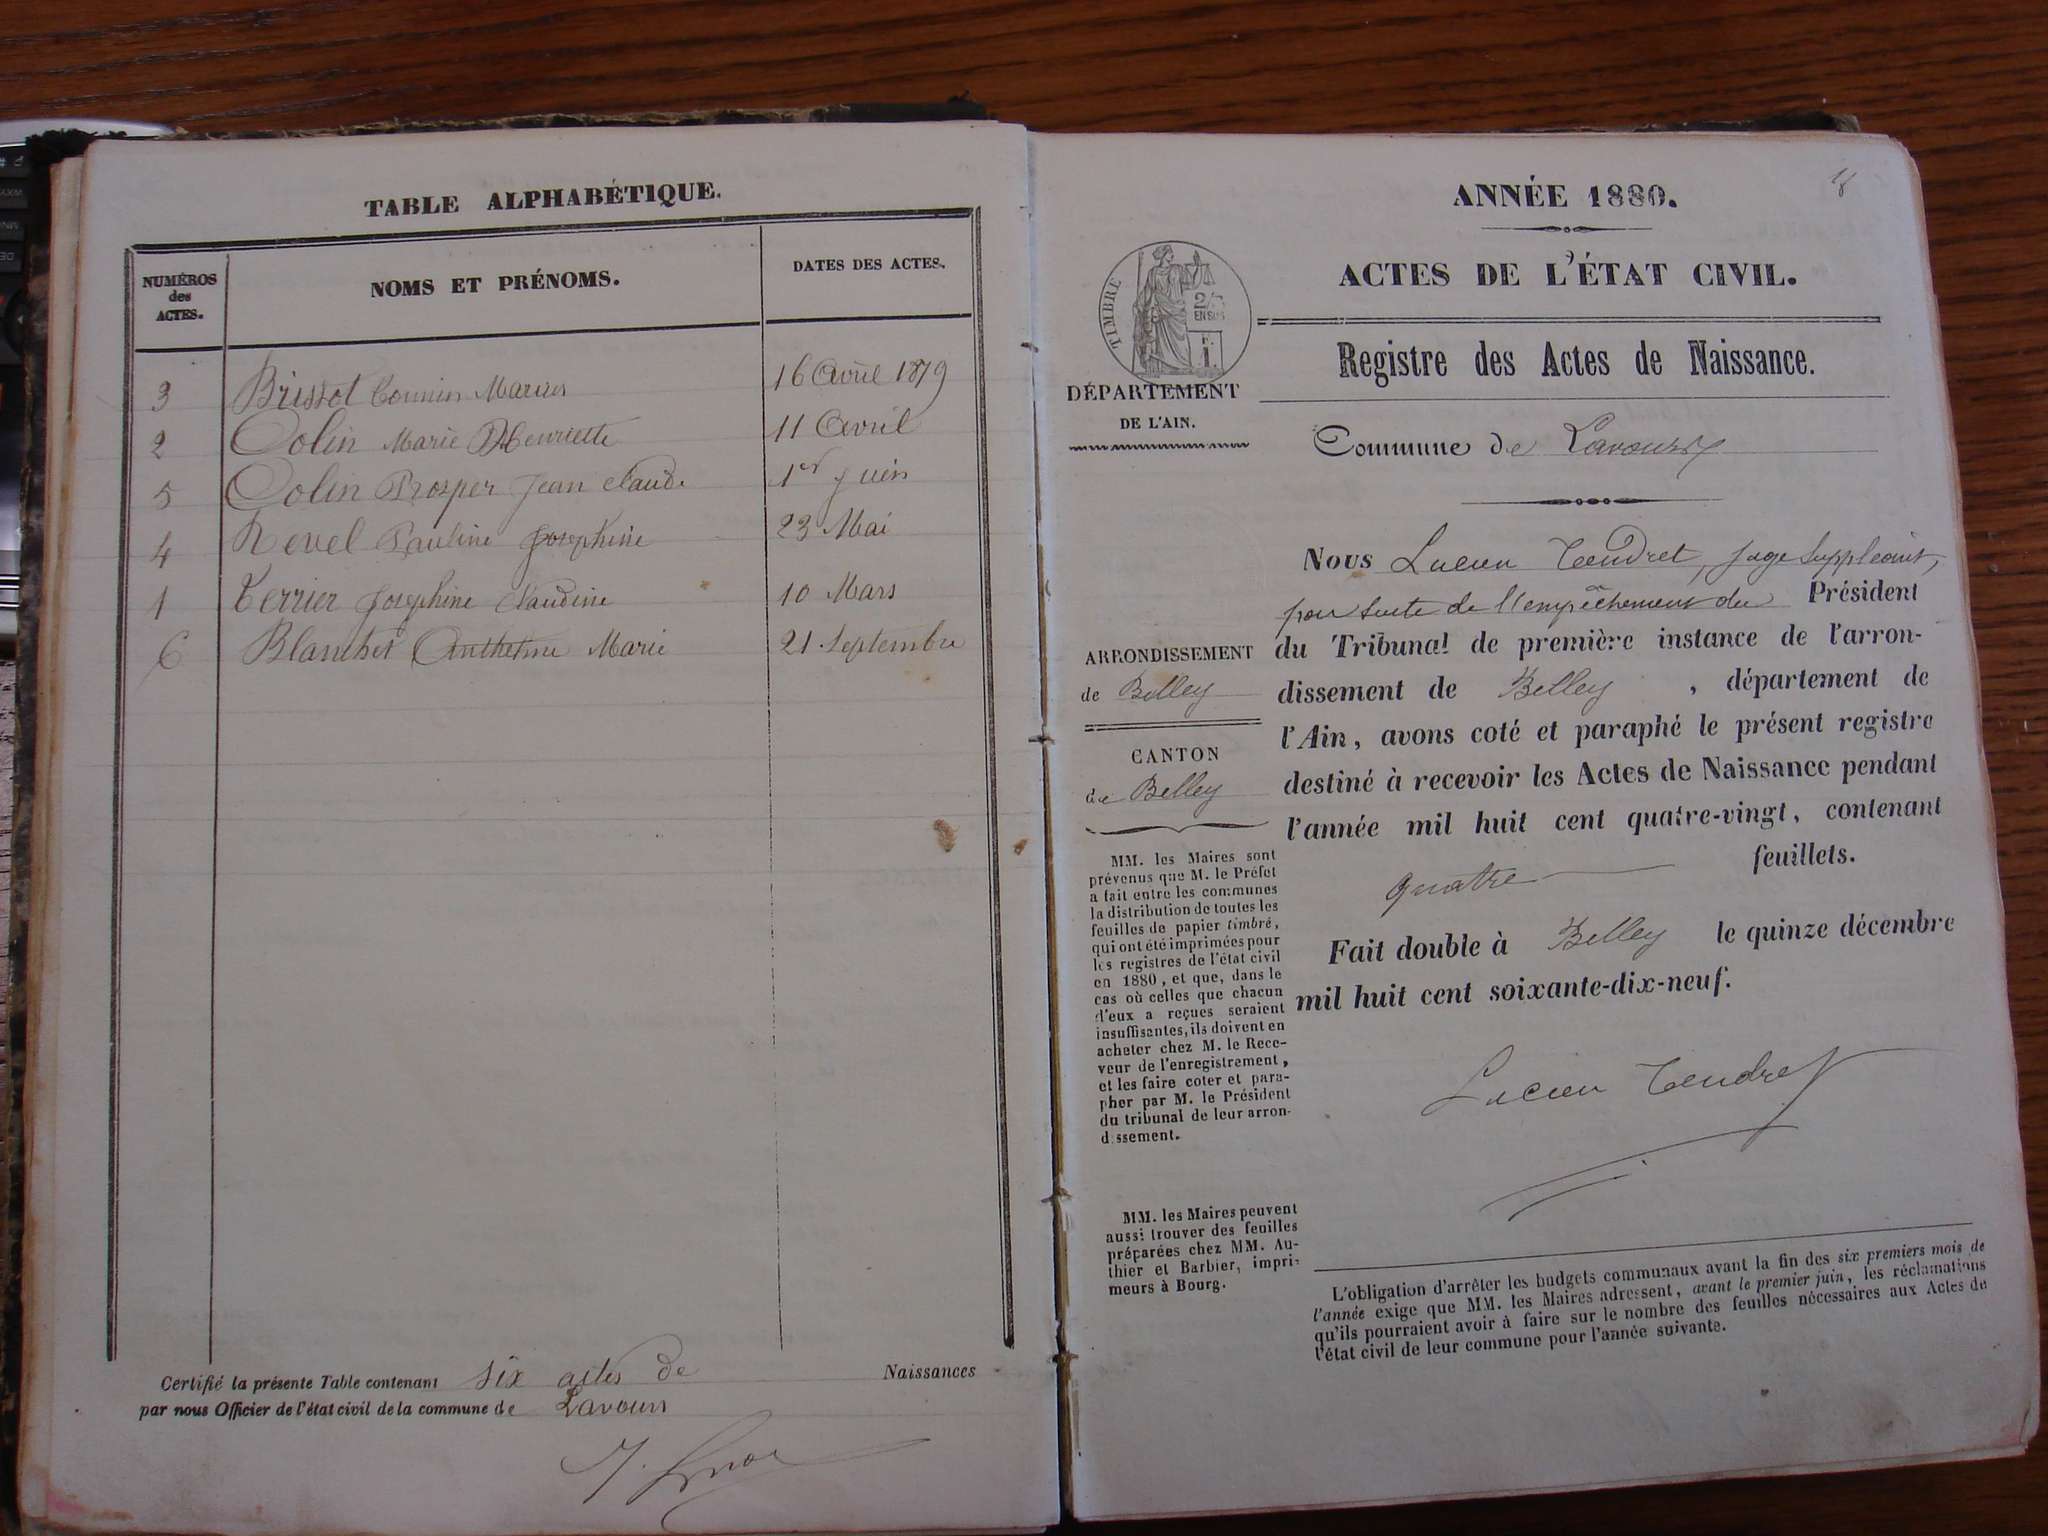 TABLE ALPHABÉTIQUE.
NUMÉROS
des
ACTES.
NOMS ET PRÉNOMS.
DATES DES ACTES.
3 Brissot Marius 16 Avril 1879
2 Colin Marie Henriette 11 Avril
5 Colin Prosper Jean Claude 1er Juin
4 Revel Pauline Josephine 23 Mai
1 Terrier Josephine Claudine 10 Mars
6 Blanchet Marie 21 Septembre
Certifié la présente Table contenant six actes de Naissances
par nous Officier de l'état civil de la commune de Lavours
ANNÉE 1880.
ACTES DE L'ÉTAT CIVIL.
TIMBRE
2/5
EN SUS
Registre des Actes de Naissance.
DÉPARTEMENT
DE L'AIN.
Commune de Lavours
Nous Lucien Tendret, juge suppléant,
par suite de l'empêchement du Président
du Tribunal de première instance de l'arron-
dissement de Belley, département de
l'Ain, avons coté et paraphé le présent registre
destiné à recevoir les Actes de Naissance pendant
l'année mil huit cent quatre-vingt, contenant
quatre feuillets.
Fait double à Belley le quinze décembre
mil huit cent soixante-dix-neuf.
Lucien Tendret
ARRONDISSEMENT
de Belley
CANTON
de Belley
MM. les Maires sont
prévenus que M. le Préfet
a fait entre les communes
la distribution de toutes les
feuilles de papier timbré,
qui ont été imprimées pour
les registres de l'état civil
en 1880, et que, dans le
cas où celles que chacun
d'eux a reçues seraient
insuffisantes, ils doivent en
acheter chez M. le Rece-
veur de l'enregistrement,
et les faire coter et para-
pher par M. le Président
du tribunal de leur arron-
dissement.
MM. les Maires peuvent
aussi trouver des feuilles
préparées chez MM. Au-
thier et Barbier, impri-
meurs à Bourg.
L'obligation d'arrêter les budgets communaux avant la fin des six premiers mois de
l'année exige que MM. les Maires adressent, avant le premier juin, les réclamations
qu'ils pourraient avoir à faire sur le nombre des feuilles nécessaires aux Actes de
l'état civil de leur commune pour l'année suivante.